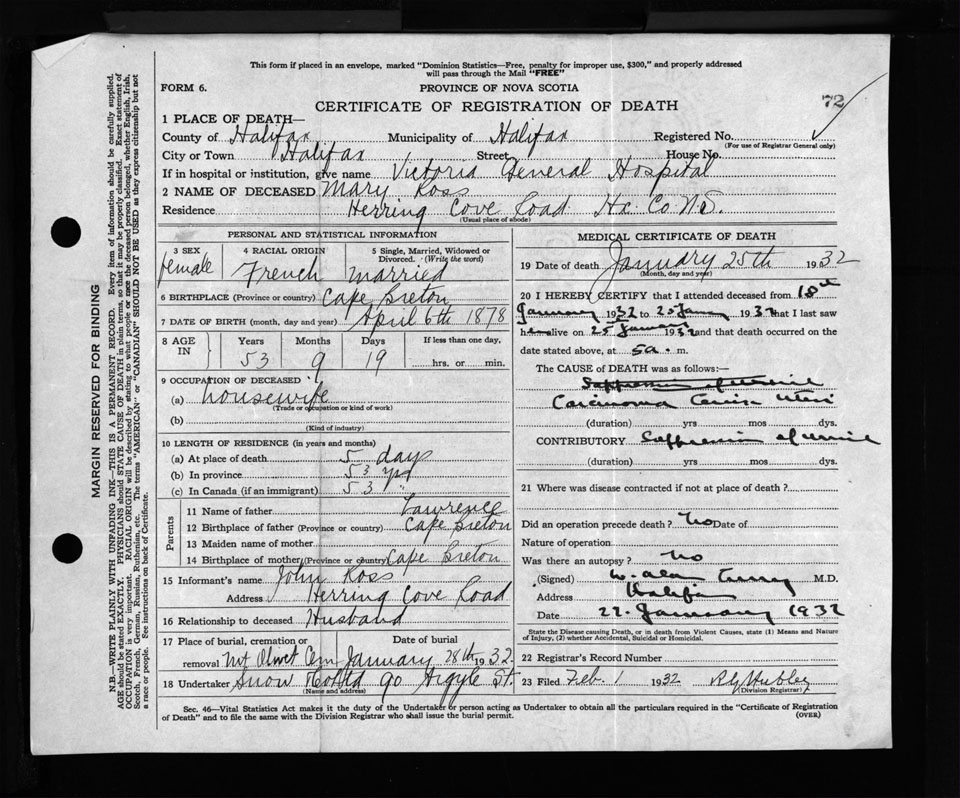 This form if placed in an envelope, marked "Dominion Statistics—Free, penalty for improper use, $300," and properly addressed
will pass through the Mail "FREE"
FORM 6.
PROVINCE OF NOVA SCOTIA
72
CERTIFICATE OF REGISTRATION OF DEATH
1 PLACE OF DEATH—
County of Halifax Municipality of Halifax Registered No.
(For use of Registrar General only)
City or Town Halifax Street House No.
If in hospital or institution, give name Victoria General Hospital
2 NAME OF DECEASED Mary Ross
Residence Herring Cove Road Hx. Co. N.S.
(Usual place of abode)
PERSONAL AND STATISTICAL INFORMATION
3 SEX
female
4 RACIAL ORIGIN
French
5 Single, Married, Widowed or
Divorced. (Write the word)
married
6 BIRTHPLACE (Province or country) Cape Breton
7 DATE OF BIRTH (month, day and year) April 6th 1878
8 AGE IN
Years Months Days If less than one day,
53 9 19 hrs. or min.
9 OCCUPATION OF DECEASED
(a) housewife
(Trade or occupation or kind of work)
(b)
(Kind of industry)
10 LENGTH OF RESIDENCE (in years and months)
(a) At place of death 5 days
(b) In province 53 yrs
(c) In Canada (if an immigrant) 53 "
Parents
11 Name of father Lawrence
12 Birthplace of father (Province or country) Cape Breton
13 Maiden name of mother
14 Birthplace of mother (Province or country) Cape Breton
15 Informant's name John Ross
Address Herring Cove Road
16 Relationship to deceased Husband
17 Place of burial, cremation or Date of burial
removal Mt Olivet Cem January 28th 1932
18 Undertaker Snow & Co Ltd 90 Argyle St.
(Name and address)
MEDICAL CERTIFICATE OF DEATH
19 Date of death January 25th 1932
(Month, day and year)
20 I HEREBY CERTIFY that I attended deceased from
January 1932 to 25 January 1932 that I last saw
h alive on 25 January 1932 and that death occurred on the
date stated above, at 5 a. m.
The CAUSE of DEATH was as follows:—
Suppression of urine
Carcinoma Cervix Uteri
(duration) yrs mos dys.
CONTRIBUTORY Suppression of urine
(duration) yrs mos dys.
21 Where was disease contracted if not at place of death?
Did an operation precede death? No Date of
Nature of operation
Was there an autopsy? No
(Signed) W. Alan M.D.
Address Halifax
Date January 1932
State the Disease causing Death, or in death from Violent Causes, state (1) Means and Nature
of Injury, (2) whether Accidental, Suicidal or Homicidal.
22 Registrar's Record Number
23 Filed Feb. 1 1932
(Division Registrar)
Sec. 46—Vital Statistics Act makes it the duty of the Undertaker or person acting as Undertaker to obtain all the particulars required in the "Certificate of Registration
of Death" and to file the same with the Division Registrar who shall issue the burial permit.
(OVER)
MARGIN RESERVED FOR BINDING
N.B.—WRITE PLAINLY WITH UNFADING INK—THIS IS A PERMANENT RECORD. Every item of information should be carefully supplied.
AGE should be stated EXACTLY. PHYSICIANS should STATE CAUSE OF DEATH in plain terms, so that it may be properly classified. Exact statement of
OCCUPATION is very important. RACIAL ORIGIN will be described by stating to what people or race the deceased person belonged, whether English, Irish,
Scotch, French, German, Russian, Ruthenian, etc. The terms "AMERICAN" or "CANADIAN" SHOULD NOT BE USED as they express citizenship but not
a race or people. See instructions on back of Certificate.